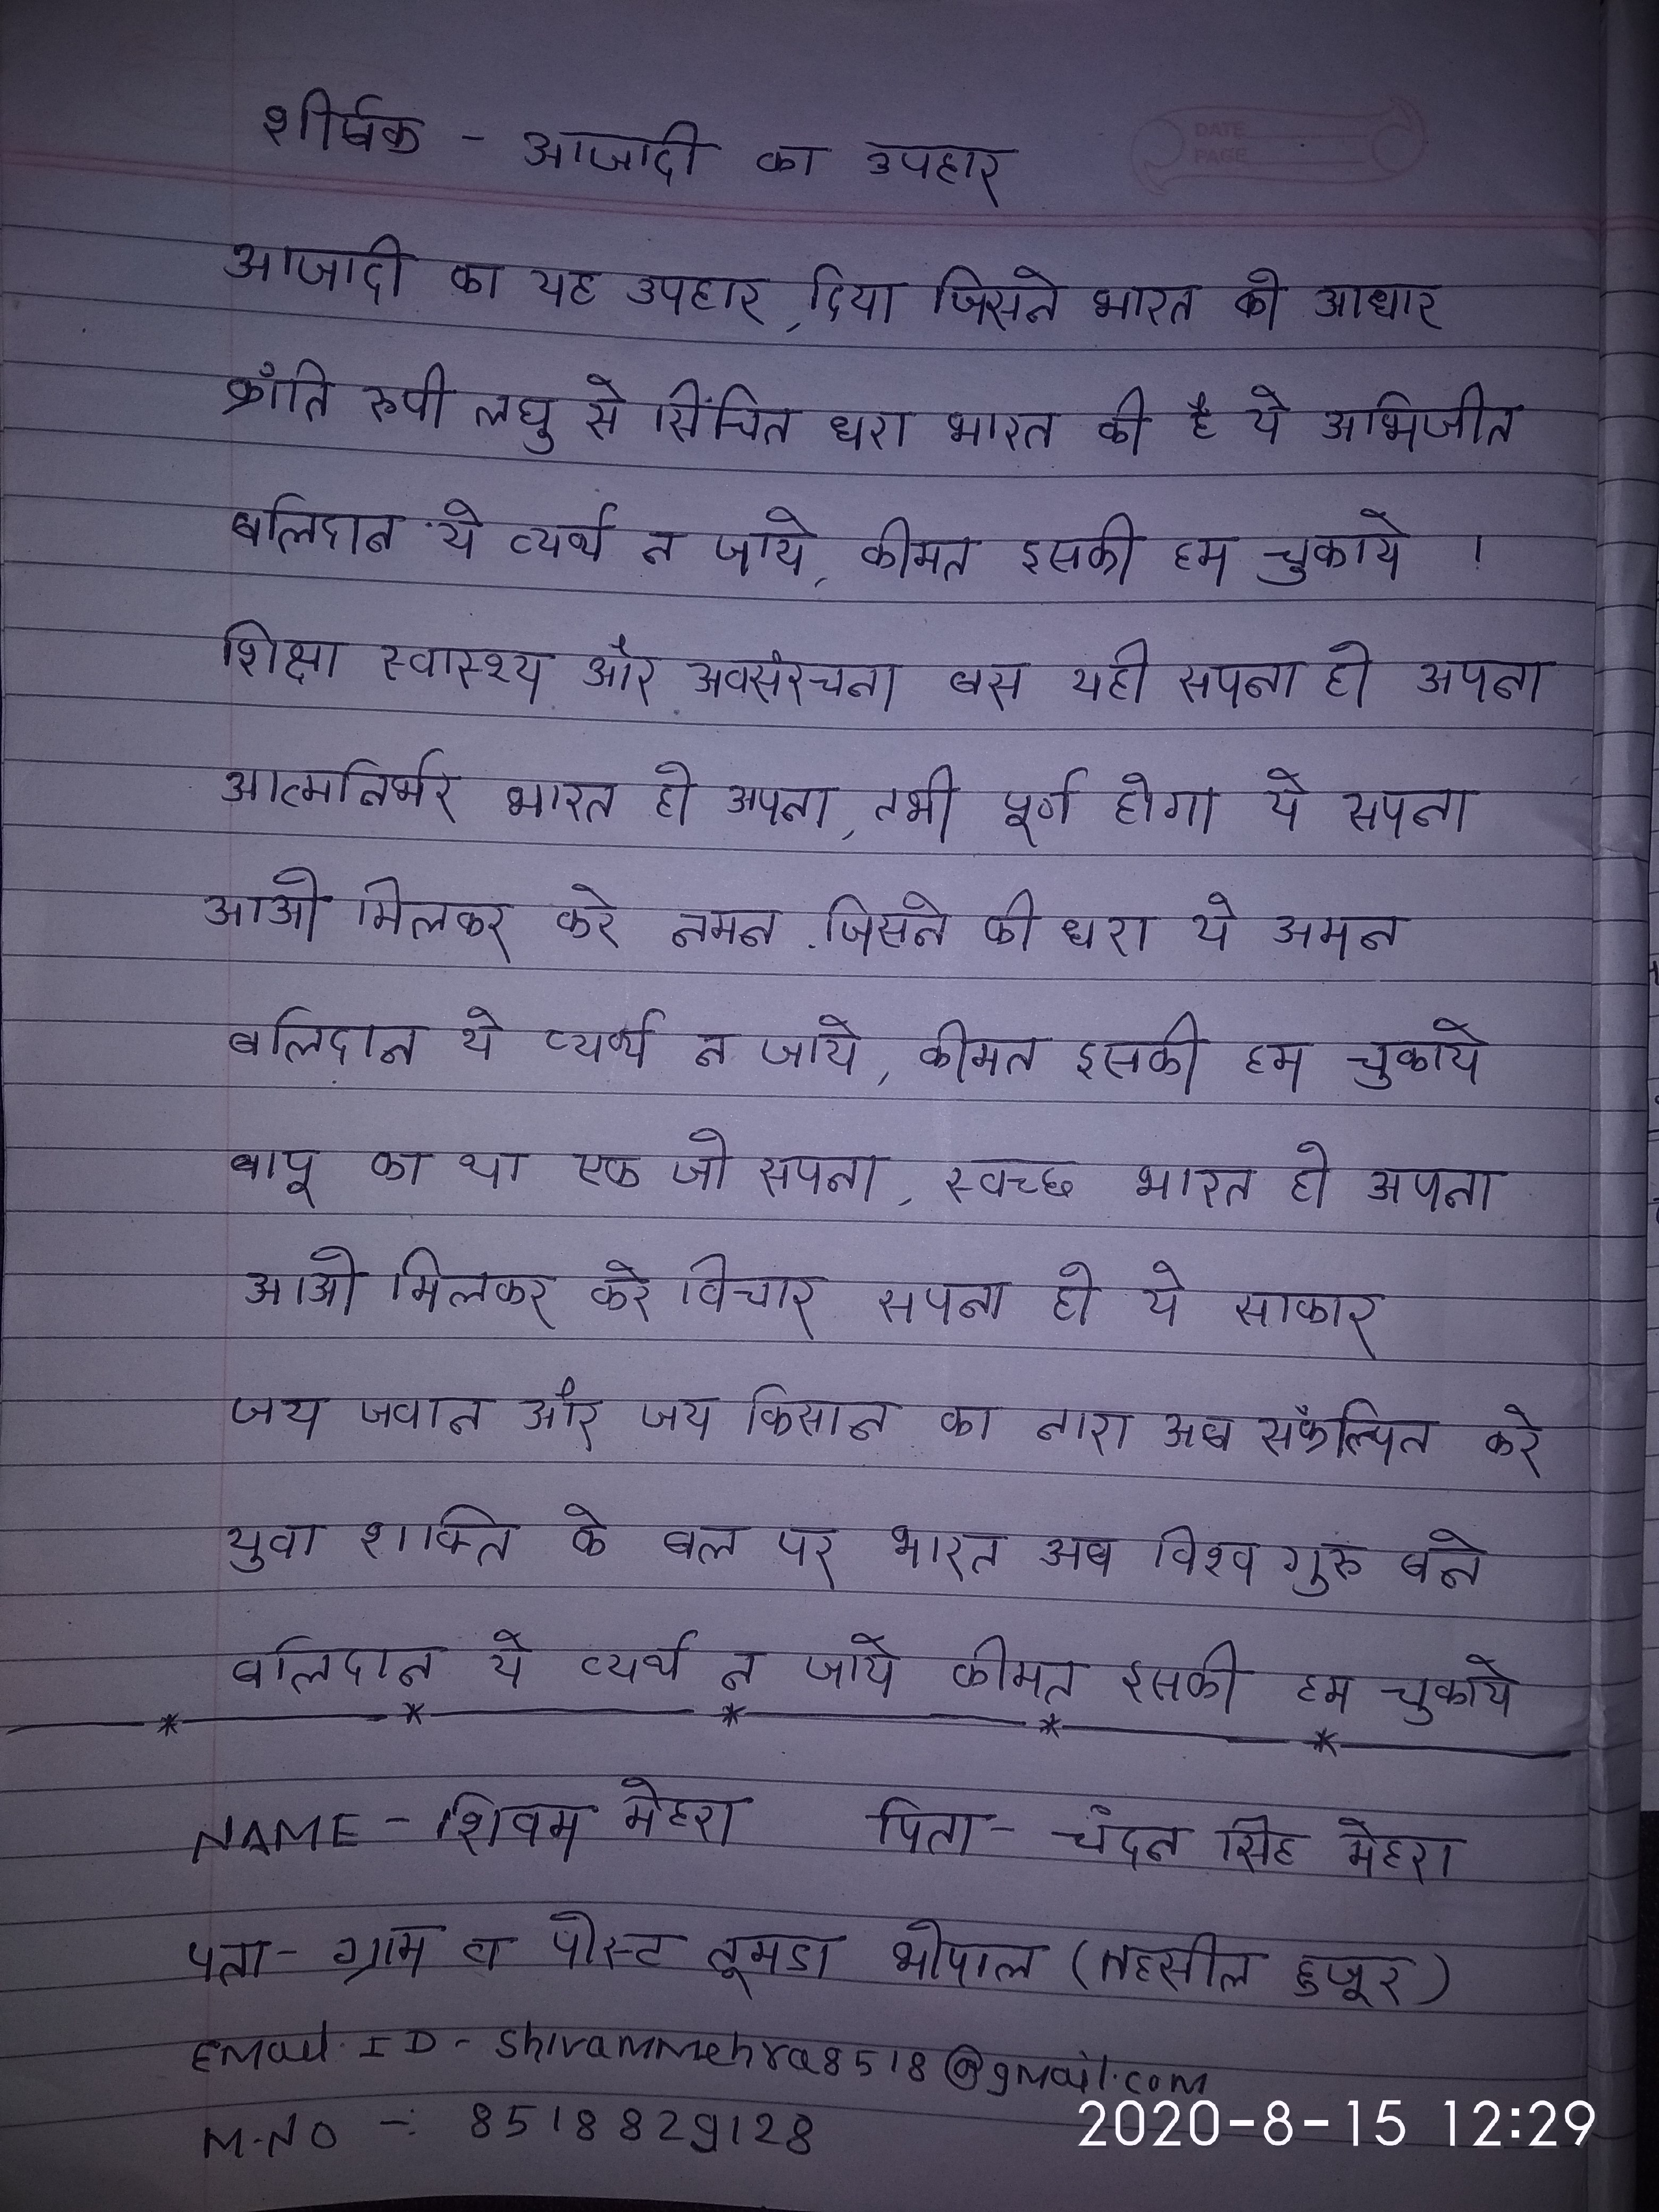 DATE
PAGE
शीर्षक - आजादी का उपहार
आजादी का यह उपहार, दिया जिसने भारत को आधार
क्राँति रुपी लघु से सिंचित धरा भारत की है ये अभिजीत
बलिदान ये व्यर्थ न जाये, कीमत इसकी हम चुकाये ।
शिक्षा स्वास्थ्य और अवसंरचना बस यही सपना हो अपना
आत्मनिर्भर भारत हो अपना, तभी पूर्ण होगा ये सपना
आओ मिलकर करे नमन जिसने की धरा ये अमन
बलिदान ये व्यर्थ न जाये, कीमत इसकी हम चुकाये
बापू का था एक जो सपना, स्वच्छ भारत हो अपना
आओ मिलकर करे विचार सपना हो ये साकार
जय जवान और जय किसान का नारा अब संकल्पित करे
युवा शक्ति के बल पर भारत अब विश्व गुरु बने
बलिदान ये व्यर्थ न जाये कीमत इसकी हम चुकाये
NAME - शिवम मेहरा पिता - चंदन सिंह मेहरा
पता - ग्राम व पोस्ट तूमडा भोपाल (तहसील हुजूर)
EMail. ID - shivammehra8518@gmail.com
M.NO -: 8518829128
2020-8-15 12:29